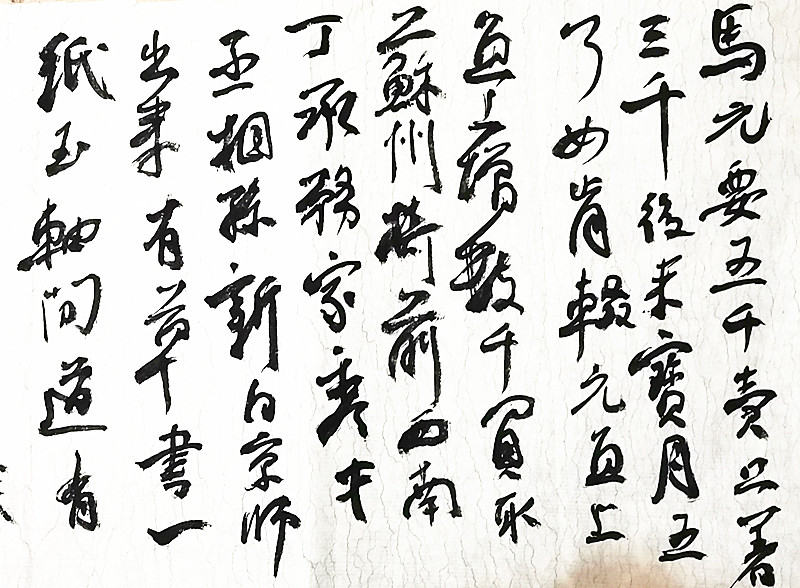 馬元要五千賣只著
三千後来寶月五
了如肯輟元直上
直上增數千買取
二蘇州擕前西南
丁承務家秀才
丞相孫新自京師
出来有草書一
紙玉軸間道有